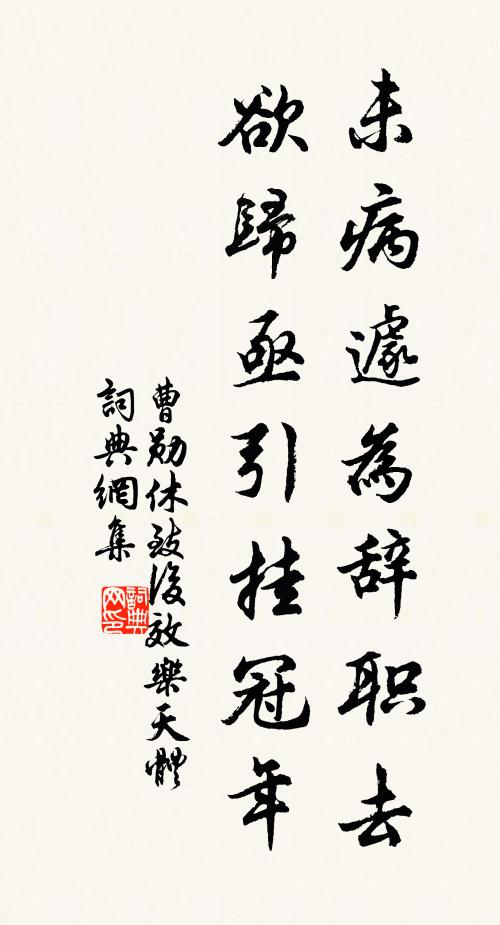 未病遽為辞职去
欲歸亟引挂冠年
曹勛休致後效樂天體
詞典網集
詞典网印